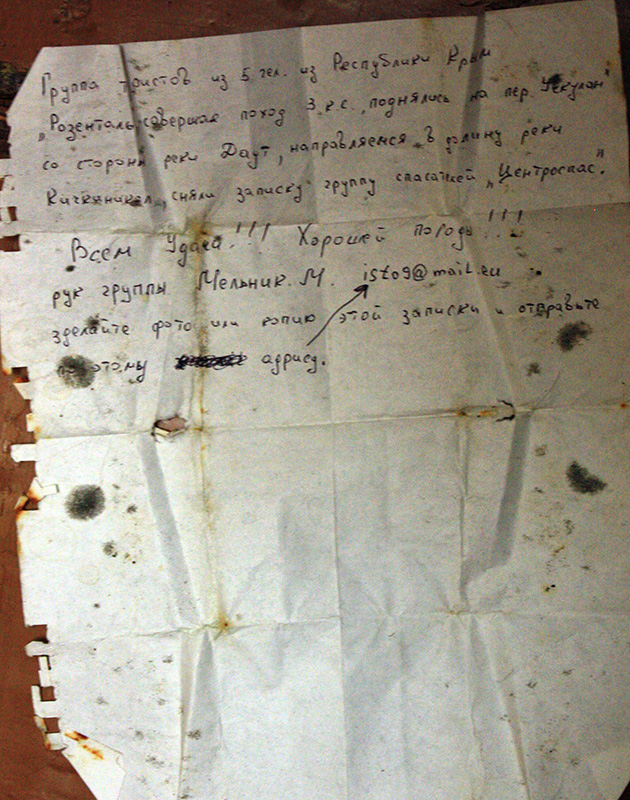 Группа тристов из 5 чел. из Республики Крым
„Розенталь", совершая поход 3 к.с., поднялись на пер. „Чекулан"
со стороны реки Даут, направляемся в долину реки
сняли записку группу спасателей „Центроспас".
Всем Удачи!!! Хорошей погоды!!!
рук группы Мельник. М. isto9@mail.eu
зделайте фото или копию этой записки и отправьте
по этому адрису.